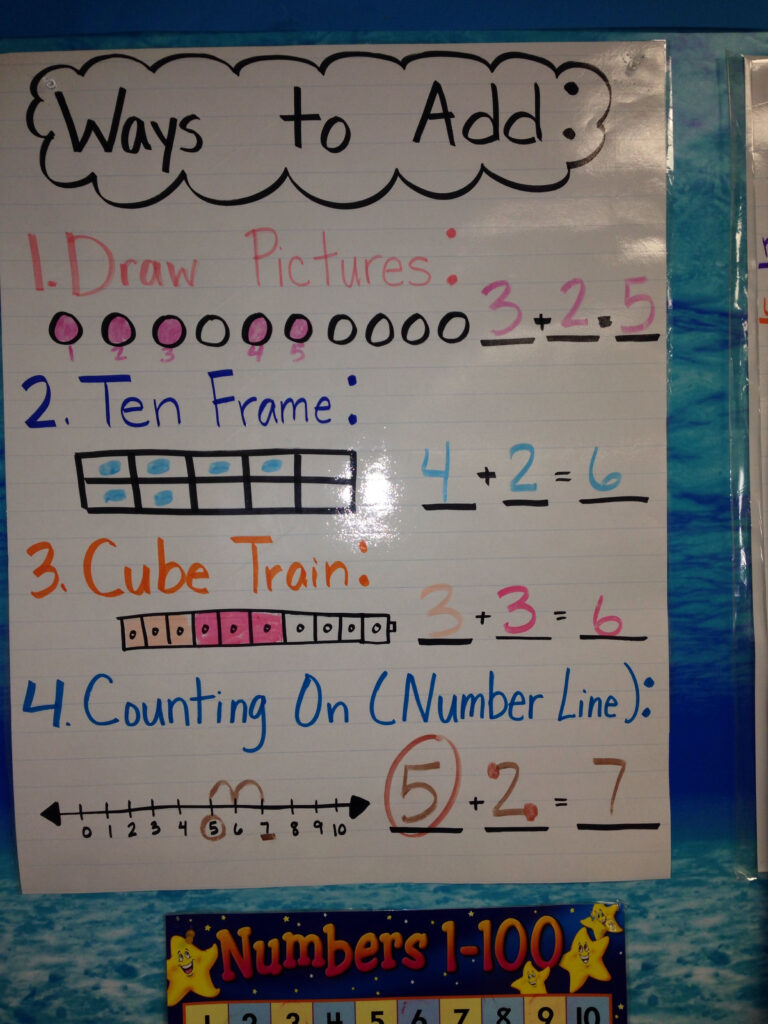 Ways to Add:
1. Draw Pictures:
3 + 2 = 5
1 2 3 4 5
2. Ten Frame:
4 + 2 = 6
3. Cube Train:
3 + 3 = 6
4. Counting On (Number Line):
5 + 2 = 7
0 1 2 3 4 5 6 7 8 9 10
Numbers 1-100
1 2 3 4 5 6 7 8 9 10